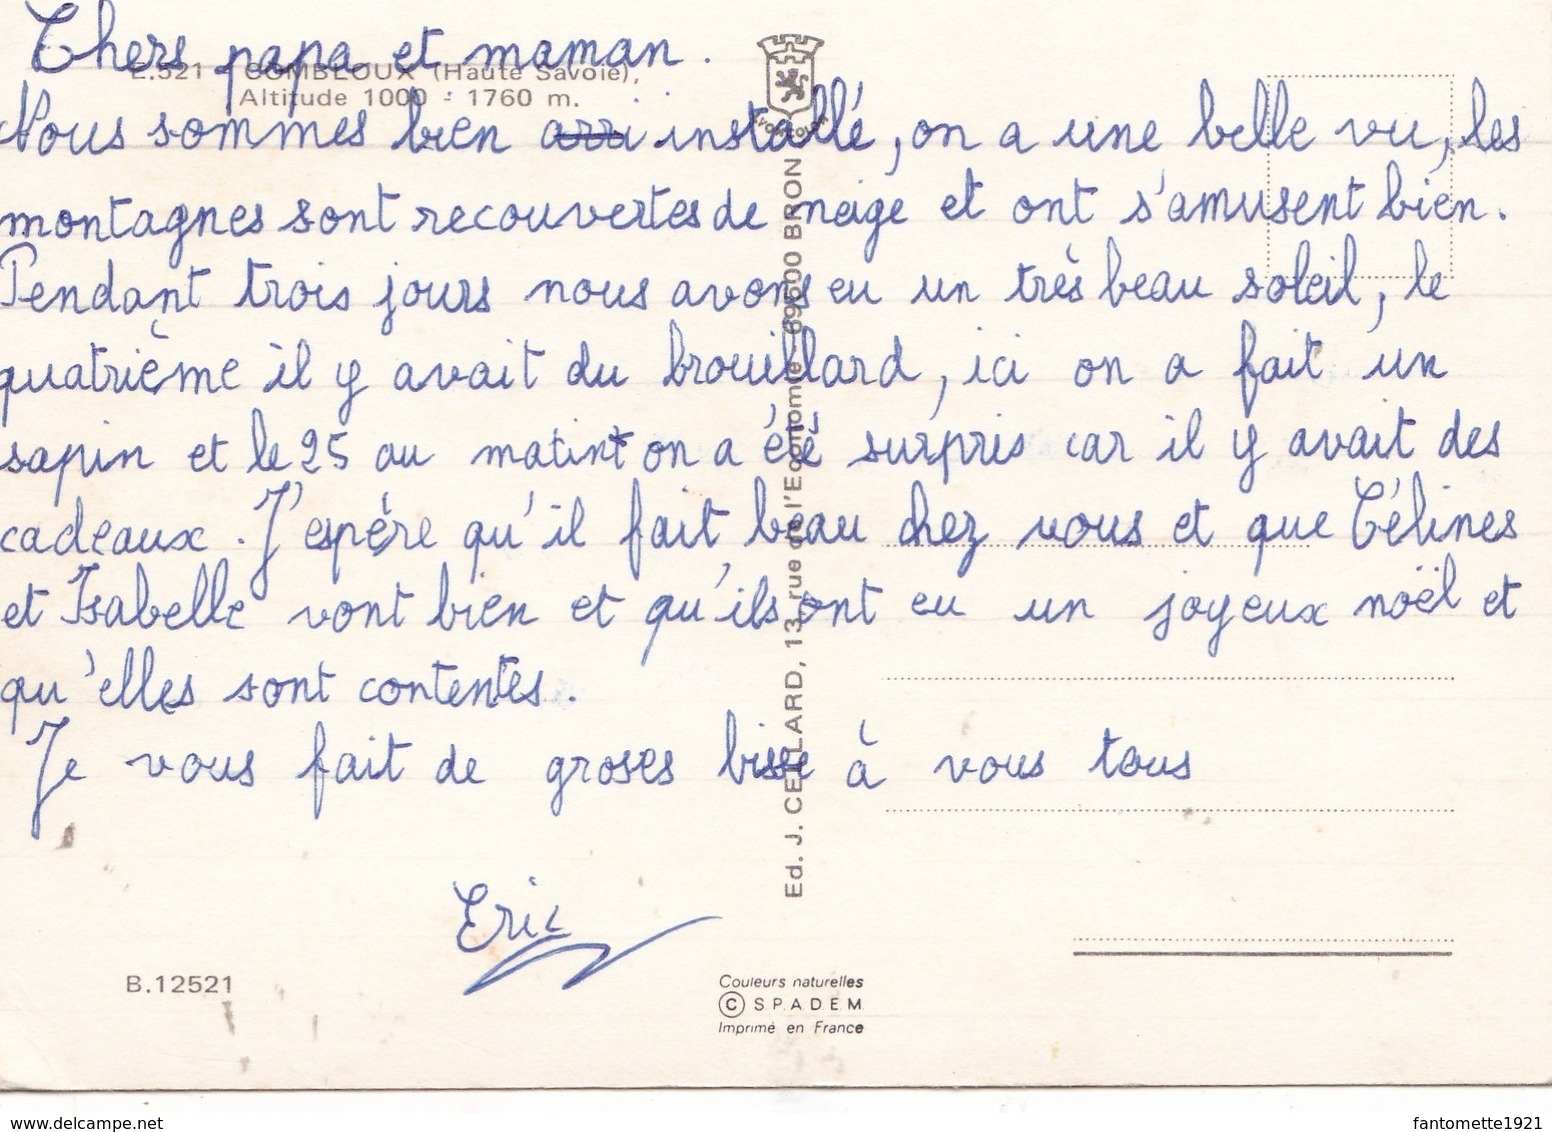 Chers papa et maman.
E.521 - COMBLOUX (Haute Savoie),
Altitude 1000 - 1760 m.
Nous sommes bien arri installé, on a une belle vu, les
montagnes sont recouvertes de neige et ont s'amusent bien.
Pendant trois jours nous avons eu un très beau soleil, le
quatrième il y avait du brouillard, ici on a fait un
sapin et le 25 au matin on a été surpris car il y avait des
cadeaux. J'espére qu'il fait beau chez vous et que Célines
et Isabelle vont bien et qu'ils ont eu un joyeux noël et
qu'elles sont contentes.
Je vous fait de groses bisse à vous tous
Eric
Ed. J. CELLARD, 13, rue de l'Economie - 69500 BRON
B.12521
Couleurs naturelles
© S.P.A.D.E.M.
Imprimé en France
www.delcampe.net
fantomette1921